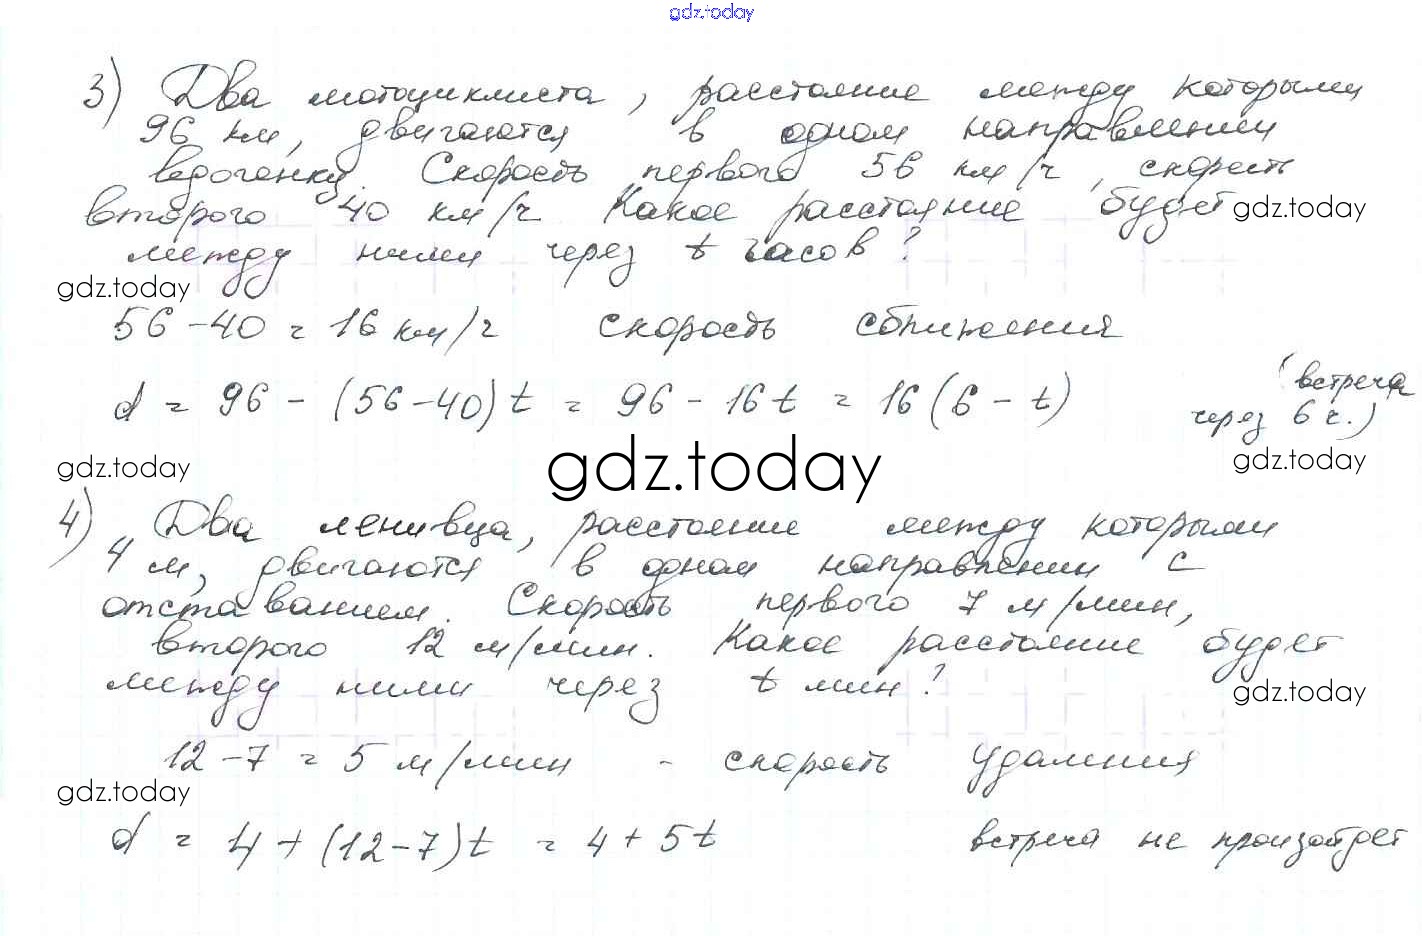 gdz.today
3) Два мотоциклиста, расстояние между которыми
96 км, двигаются в одном направлении
вдогонку. Скорость первого 56 км/ч, скорость
второго 40 км/ч Какое расстояние будет gdz.today
между ними через t часов?
gdz.today
56 - 40 = 16 км/ч скорость сближения
d = 96 - (56 - 40)t = 96 - 16t = 16(6 - t) (встреча
через 6 ч.)
gdz.today gdz.today gdz.today
4) Два ленивца, расстояние между которыми
4 м, двигаются в одном направлении с
отставанием. Скорость первого 7 м/мин,
второго 12 м/мин. Какое расстояние будет
между ними через t мин? gdz.today
12 - 7 = 5 м/мин - скорость удаления
gdz.today
d = 4 + (12 - 7)t = 4 + 5t встреча не произойдет